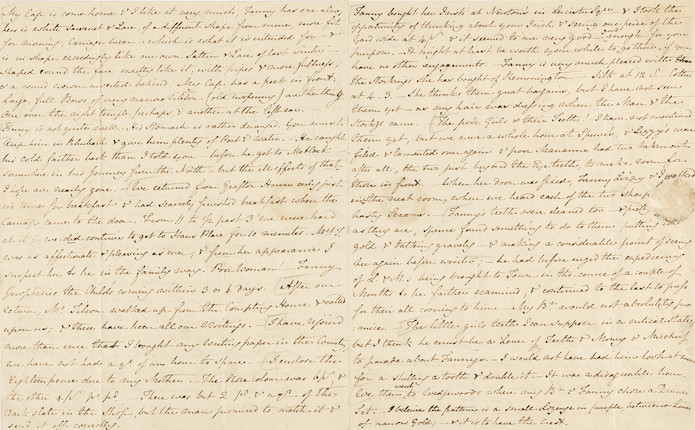 My Cap is come home & I like it very much, Fanny has one also;
hers is white Sarsenet & Lace, of a different shape from mine, more fit
for morning, Carriage wear - which is what it is intended for - &
is in shape exceedingly like our own Sattin & Lace of last winter -
shaped round the face exactly like it, with pipes & more fullness,
& a round crown inserted behind. My Cap has a peak in front.
Large, full Bows of very narrow ribbon (old twopenny) are the thing.
One over the right temple perhaps, & another at the left ear.
Henry is not quite well. His Stomach is rather deranged. You must
keep him in Rhubarb & give him plenty of Port & Water. He caught
his cold farther back than I told you - before he got to Matlock -
somewhere in his Journey from the North - but the ill effects of that
I hope are nearly gone. We returned from Grafton House only just
in time for breakfast & had scarcely finished breakfast when the
Carriage came to the door. From 11 to ½ past 3 we were hard
at it; - we did contrive to get to Hans Place for 10 minutes. Mrs T.
was as affectionate & pleasing as ever; & from her appearance I
suspect her to be in the family way. Poor Woman! Fanny
prophecies the Child's coming within 3 or 4 days. After our
return, Mr Tilson walked up from the Compting House & called
upon us; & these have been all our Visitings. I have rejoiced
more than once that I bought my Writing paper in the Country;
we have not had a qr of an hour to spare. I enclose the
Eighteenpence due to my Mother. The Rose colour was 6/s, &
the other 4/s pr yd. There was but 2 yd & a qr of the
dark slate in the Shop, but the man promised to match it &
send it off correctly.
Fanny bought her Irish at Newton's in Leicester Sqre & I took the
opportunity of thinking about your Irish & seeing one piece of the
Yard wide at 4/s, & it seemed to me very good - good enough for your
purpose. It might at least be worth your while to go there, if you
have no other engagements. Fanny is very much pleased with
the Stockings she has bought of Remmington - Silk at 12 S. Cotton
at 4. 3. She thinks them great bargains, but I have not seen
them yet - as my hair was dressing when the Man & the
Stockgs came. The poor Girls & their Teeth! I have not mentioned
them yet, but we were a whole hour at Spence's, & Lizzy's were
filed & lamented over again & poor Marianne had two taken out
after all, the two just beyond the Eye teeth, to make room for
those in front. When her doom was fixed, Fanny Lizzy & I walked
into the next room, where we heard each of the two sharp
hasty Screams. Fanny's teeth were cleaned too - & pretty
as they are, Spence found something to do to them, putting in
gold & talking gravely - & making a considerable point of seeing
her again before winter; - he had before urged the expediency
of L. & M.s being brought to Town in the course of a couple of
Months to be farther examined, & continued to the last to press
for their all coming to him. My Br would not absolutely pro
mise. The little girls teeth I can suppose in a critical state,
but I think he must be a Lover of Teeth & Money & Mischief
to parade about Fannys. I would not have had him look at mine
for a shilling a tooth & double it. It was a disagreable hour.
We then went to Wedgwoods where my Br & Fanny chose a Dinner
Set. I beleive the pattern is a small Lozenge in purple, between Lines
of narrow Gold; - & it is to have the Crest.